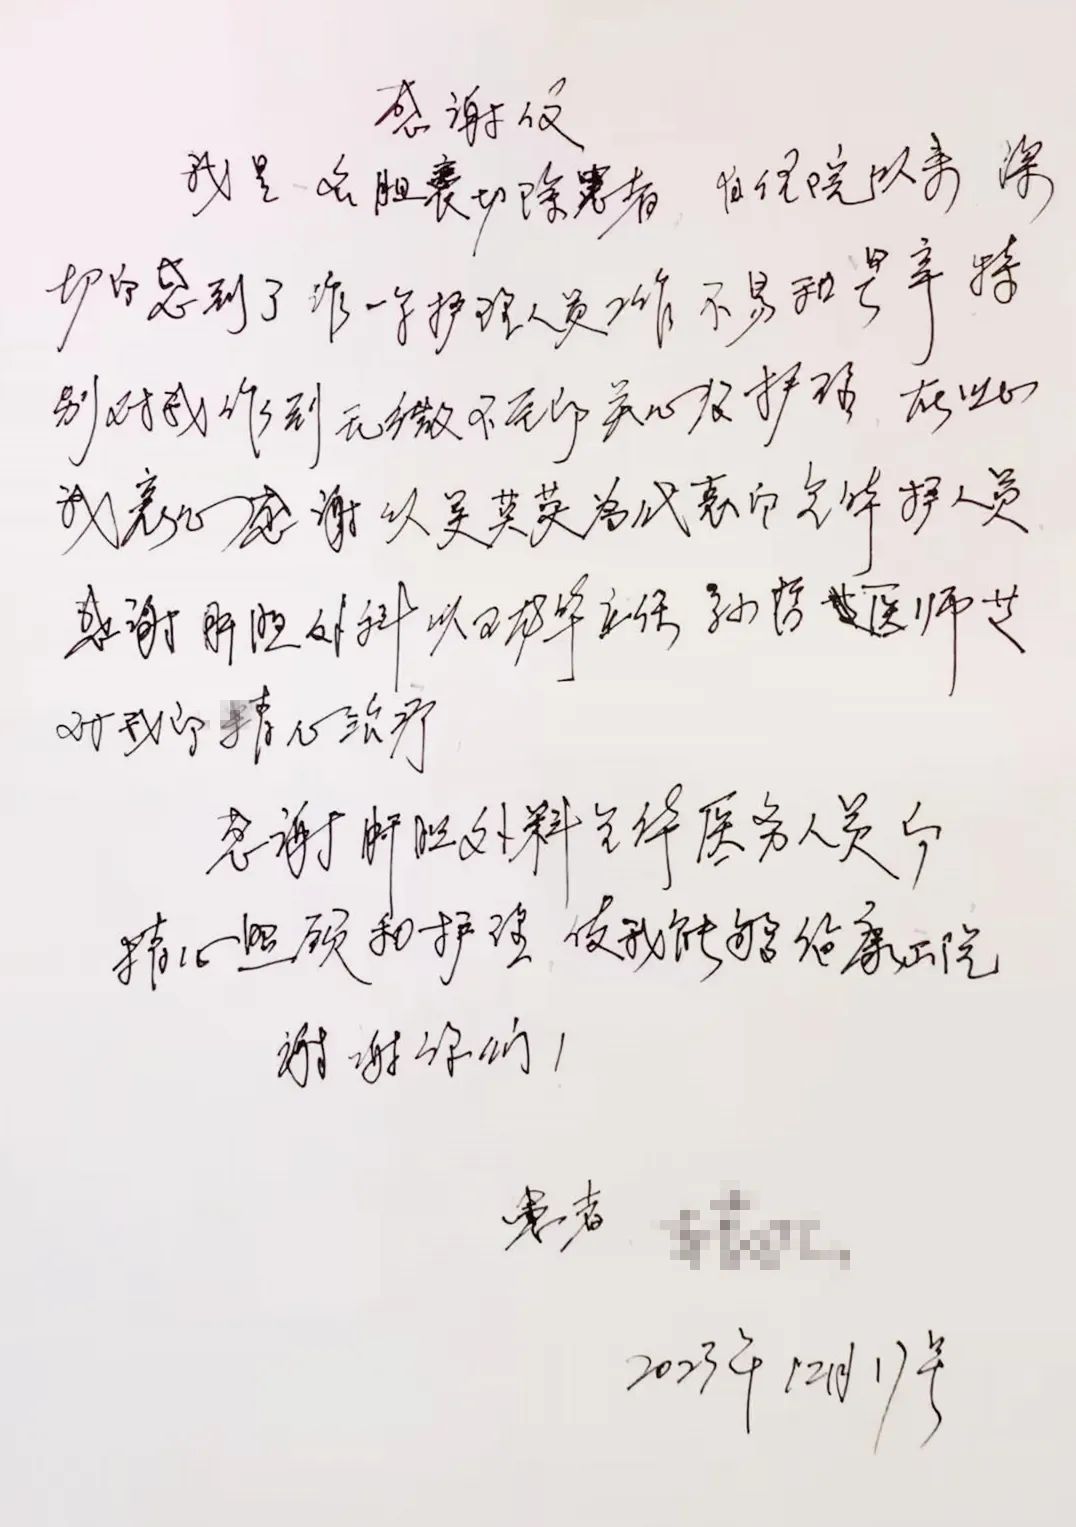 感谢仪
我是一名胆囊切除患者 自住院以来 深
切的感到了作一名护理人员工作不易和艰辛 特
别对我作到无微不至的关心及护理 在此
我衷心感谢以吴英英为代表的全体护人员
感谢肝胆外科以 主任 孙哲 医师
对我的精心治疗
感谢肝胆外科全体医务人员的
精心照顾和护理 使我能够 康出院
谢谢你们!
患者
2023年12月17号